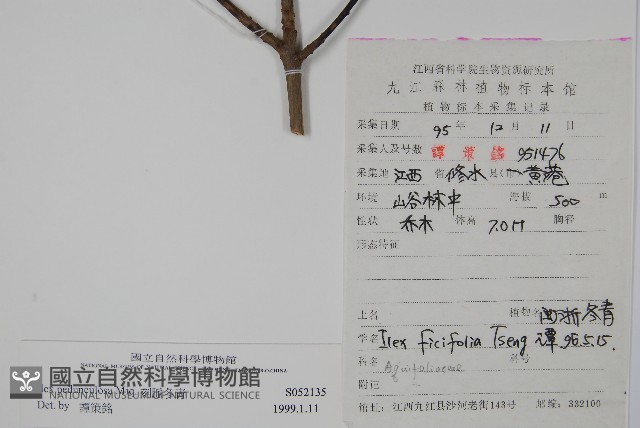 江西省科学院生物资源研究所
九江森林植物标本馆
植物标本采集记录
采集日期 95 年 12 月 11 日
采集人及号数 譚策銘 951476
采集地 江西 省 修水 县(市) 黄港
环境 山谷林中 海拔 500 m
性状 乔木 体高 7.0M 胸径
形态特征
土名 植物名 闽浙冬青
学名 Ilex ficifolia Tseng 譚 96.5.15.
科名 Aquifoliaceae 号
附记
馆址: 江西九江县沙河老街143号 邮编: 332100
國立自然科學博物館
國立自然科學博物館
NATIONAL MUSEUM OF NATURAL SCIENCE
Ilex pedunculosa Miq. 刻脈冬青 S052135
Det. by 譚策銘 1999.1.11